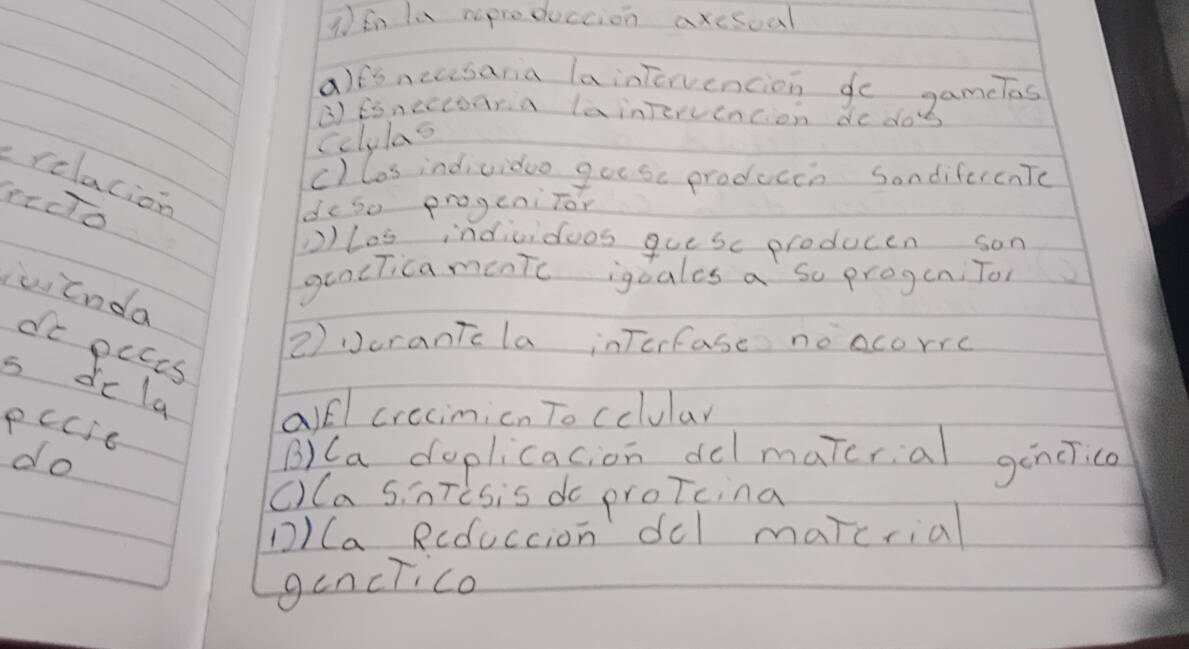 e relación
recto
ivienda
de peces
s de la
pecie
do
1) En la reproduccion axesual
a) Es necesaria la intervencion de gametas
B) Es neccoaria la intervencion de dos
celulas
c) Los individuo que se producen son diferente
de su progenitor
D) Los individuos que se producen son
geneticamente iguales a su progenitor
2) Durante la interfase no ocorre
a) El crecimiento celular
B) La duplicación del material genetico
C) La sintesis de proteina
D) La Reduccion del material
genetico